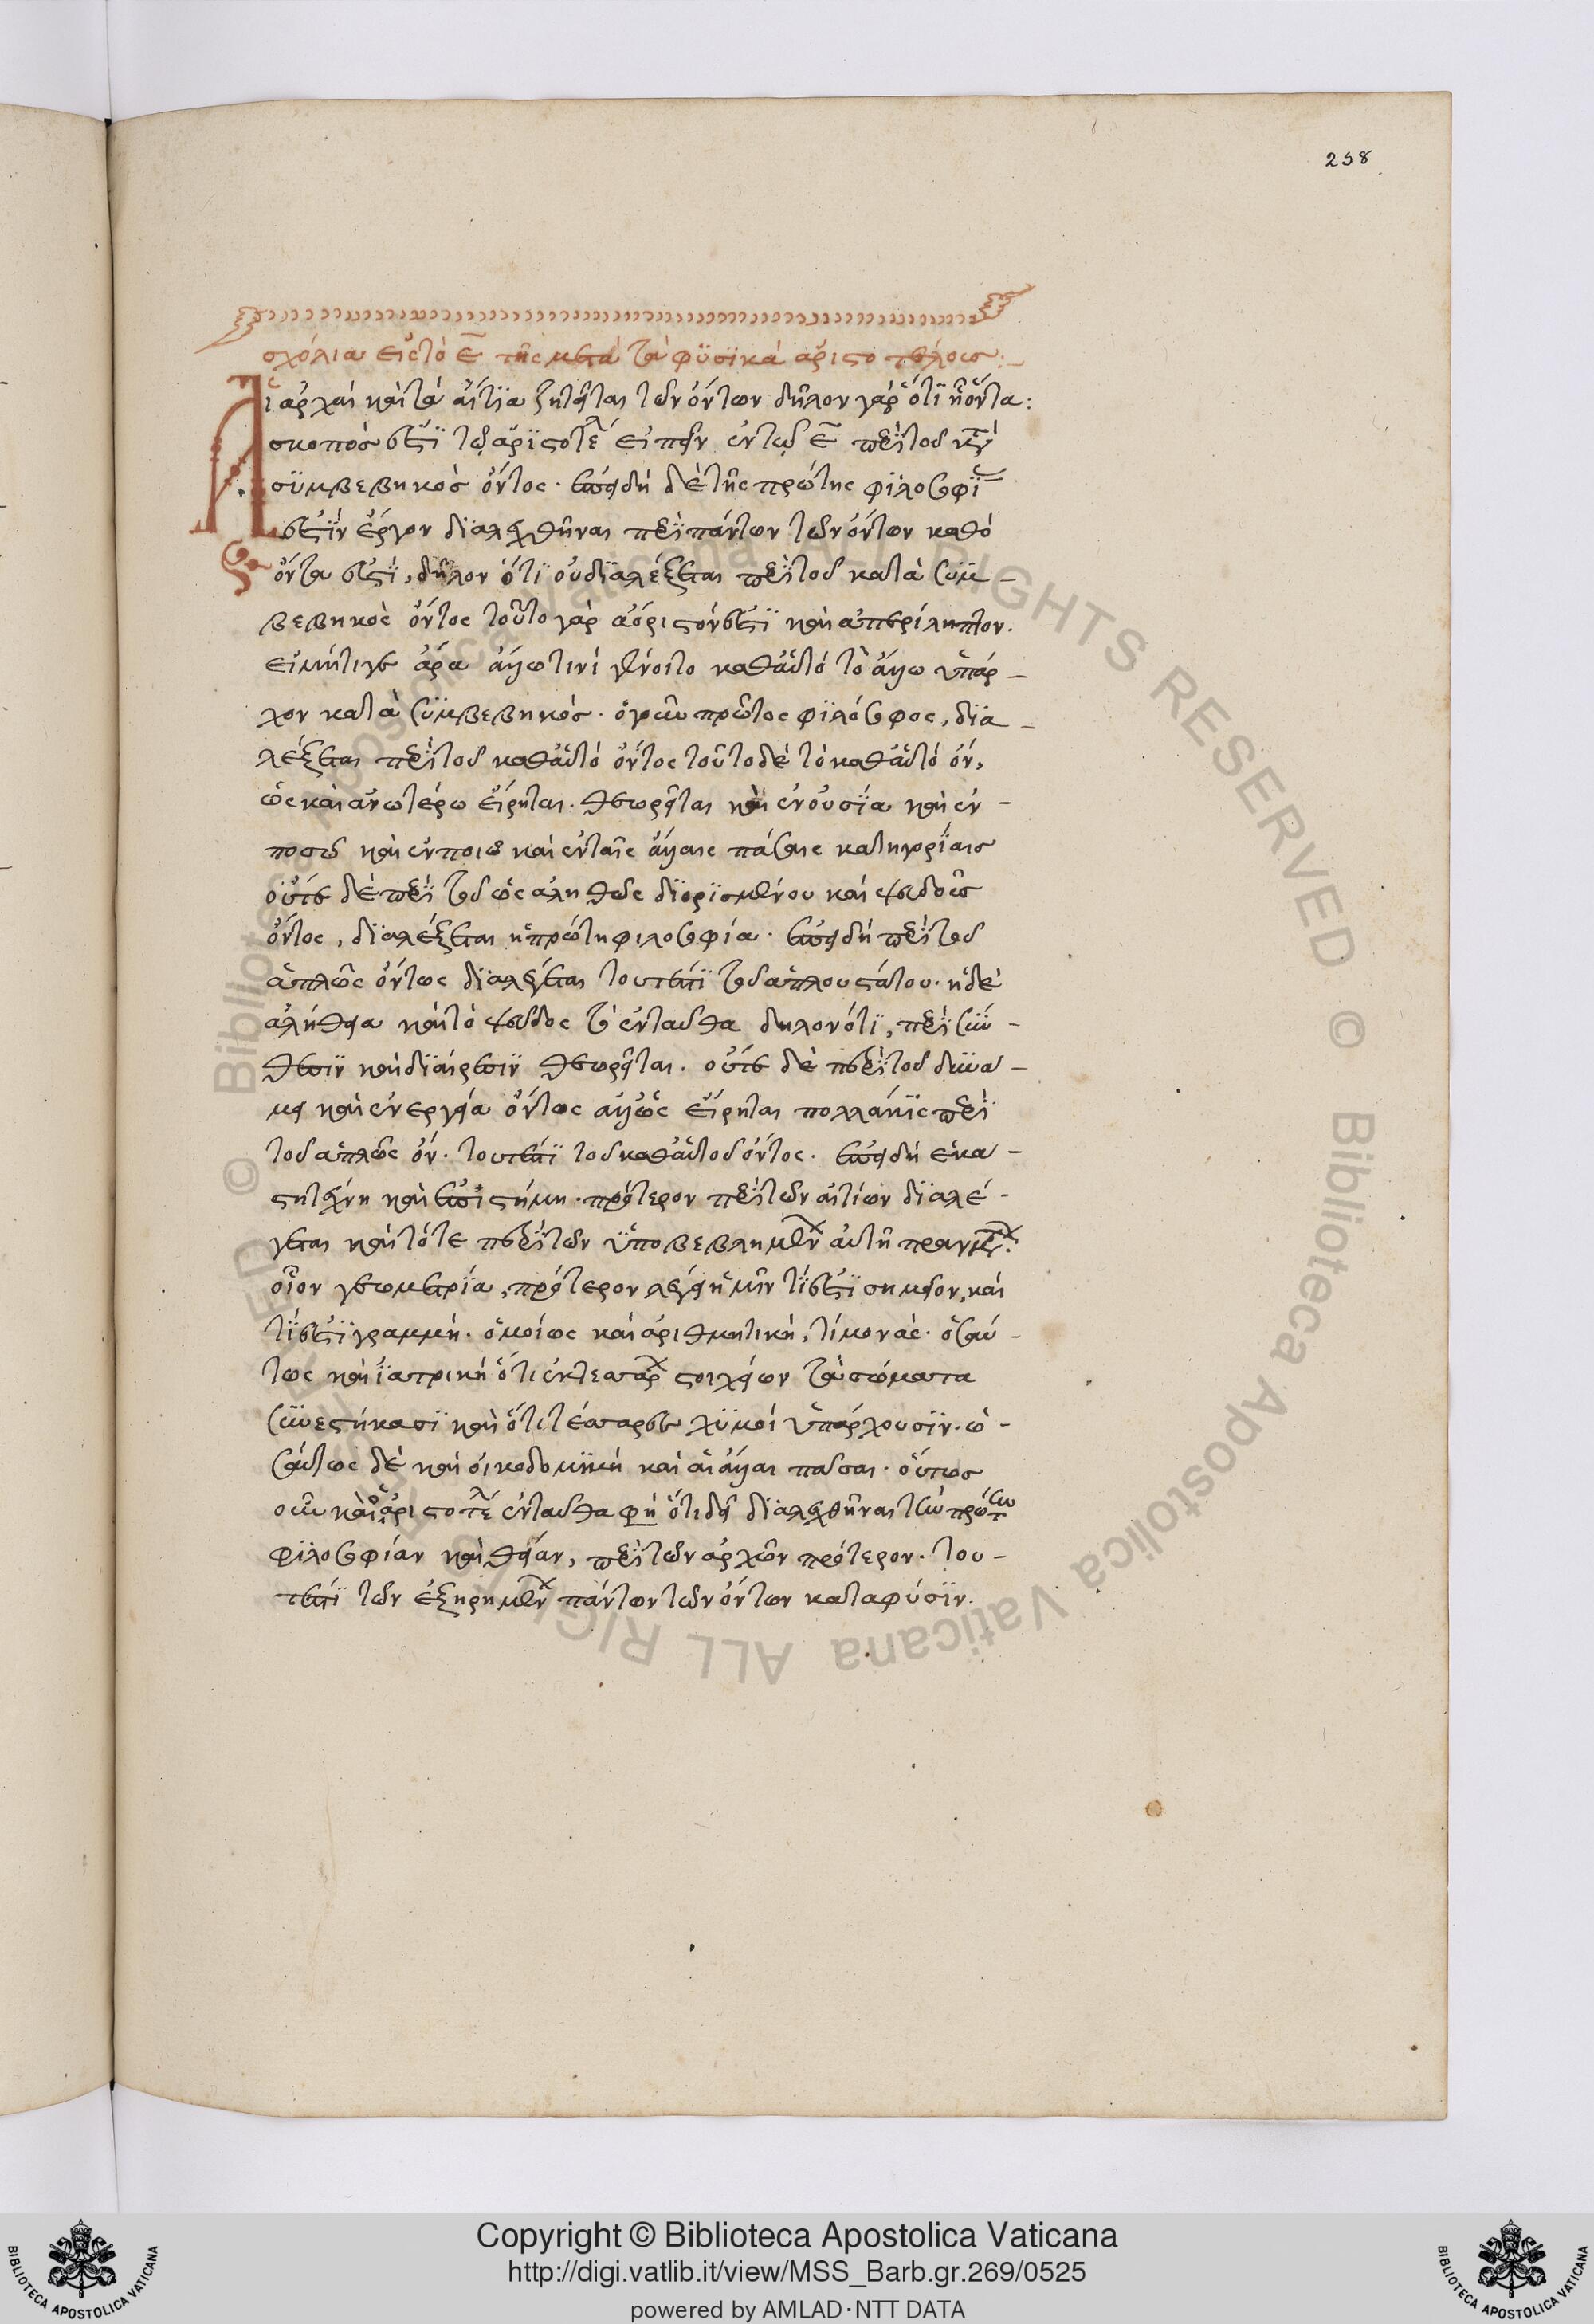 258
σχόλια εἰς τὸ ε̄ τῆς μετὰ τὰ φυσϊκὰ ἀριστοτέλους:
Αἱ ἀρχαὶ καὶ τὰ αἴτϊα ζητεῖται τῶν ὄντων δῆλον γὰρ ὅτϊ ᾗ ὄντα:
σκοπὸς ἐστῒ τῷ ἀρϊστοτέλ εἰπεῖν ἐν τῷ ε̄ περῒ τοῦ κατὰ
συμβεβηκὸς ὄντος. ἐπειδὴ δὲ τῆς πρώτης φϊλοσοφΐ
ἐστῒν ἔργον δϊαλεχθῆναι περῒ πάντων τῶν ὄντων καθὸ
ὄντα ἐστῒ, δῆλον ὅτϊ οὐ δϊαλέξεται περῒ τοῦ κατὰ συμ-
βεβηκὸς ὄντος τοῦτο γὰρ ἀόριστόν ἐστϊ καὶ ἀπερίληπτον.
εἰ μήτιγε ἄρα ἄλλω τινὶ γένοιτο καθ' αὑτὸ τὸ ἄλλω ὑπάρ-
χον κατὰ συμβεβηκός. ὁ γοῦν πρῶτος φϊλόσοφος, δϊα-
λέξεται περῒ τοῦ καθ' αὑτὸ ὄντος τοῦτο δὲ τὸ καθ' αὑτὸ ὄν,
ὡς καὶ ἀνωτέρω εἴρηται. θεωρεῖται καὶ ἐν οὐσϊα καὶ ἐν
ποσῶ καὶ ἐν ποιῶ καὶ ἐν ταῖς ἄλλαις πάσαις κατηγορΐαις
οὔτε δὲ περῒ τοῦ ὡς ἀληθῶς δϊορϊσμένου καὶ ψευδοῦς
ὄντος, δϊαλέξεται ἡ πρώτη φιλοσοφία. ἐπειδὴ περῒ τοῦ
ἁπλῶς ὄντως δϊαλέγεται τουτέστϊ τοῦ ἁπλουστάτου. ἡ δὲ
ἀλήθεια καὶ τὸ ψεῦδος τὸ ἐνταῦθα δηλονότϊ, περῒ σύν-
θεσϊν καὶ δϊαίρεσϊν θεωρεῖται. οὔτε δὲ περῒ τοῦ δυνα-
μει καὶ ἐνεργεία ὄντως ἀλλ' ὡς εἴρηται πολλάκϊς περῒ
τοῦ ἁπλῶς ὄν. τουτέστϊ τοῦ καθ' αὑτοῦ ὄντος. ἐπειδὴ ἑκα-
στη τέχνη καὶ ἐπιστήμη. πρότερον περῒ τῶν αἰτίων δϊαλέ-
γεται καὶ τότε περῒ τῶν ὑποβεβλημέν αὐτῆ πραγμάτ.
οἷον γεωμετρΐα, πρότερον λέγει ἡμῖν τΐ ἐστϊ σημεῖον, καὶ
τΐ ἐστϊ γραμμή. ὁμοίως καὶ ἀριθμητικὴ, τί μονάς. ὡσαύ-
τως καὶ ἰατρικὴ ὅτι ἐκ τεσσάρ στοιχείων τὰ σώματα
συνεστήκασϊ καὶ ὅτι τέσσαρες χϋμοὶ ὑπάρχουσϊν. ὡ-
σαύτως δὲ καὶ οἰκοδομϊκὴ καὶ αἱ ἄλλαι πᾶσαι. οὕτως
οὖν καὶ ὁ ἀριστοτέλ ἐνταῦθα φη ὅτι δεῖ δϊαλεχθῆναι τὴν πρώτην
φϊλοσοφίαν καὶ θείαν, περῒ τῶν ἀρχῶν πρότερον. του-
τέστϊ τῶν ἐξηρημέν πάντων τῶν ὄντων κατα φύσϊν.
Copyright © Biblioteca Apostolica Vaticana
http://digi.vatlib.it/view/MSS_Barb.gr.269/0525
powered by AMLAD·NTT DATA